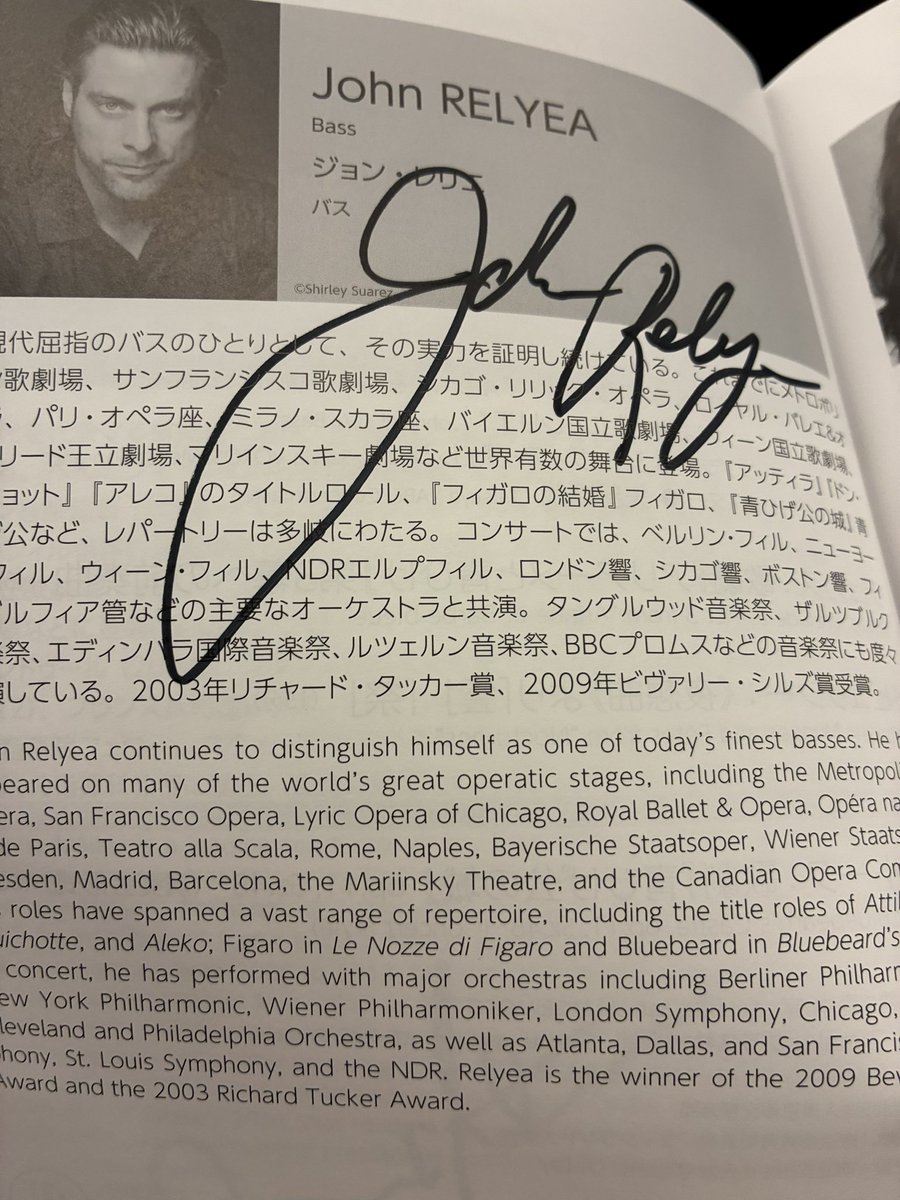 John RELYEA
Bass
ジョン・レリエ
バス
©Shirley Suarez
John Relyea
現代屈指のバスのひとりとして、その実力を証明し続けている。これまでにメトロポリ
歌劇場、サンフランシスコ歌劇場、シカゴ・リリック・オペラ、ローヤル・バレエ&オ
、パリ・オペラ座、ミラノ・スカラ座、バイエルン国立歌劇場、ウィーン国立歌劇場、
リード王立劇場、マリインスキー劇場など世界有数の舞台に登場。『アッティラ』『ドン・
ョット』『アレコ』のタイトルロール、『フィガロの結婚』フィガロ、『青ひげ公の城』青
公など、レパートリーは多岐にわたる。コンサートでは、ベルリン・フィル、ニューヨー
フィル、ウィーン・フィル、NDRエルプフィル、ロンドン響、シカゴ響、ボストン響、フィ
ルフィア管などの主要なオーケストラと共演。タングルウッド音楽祭、ザルツブルク
祭、エディンバラ国際音楽祭、ルツェルン音楽祭、BBCプロムスなどの音楽祭にも度々
演している。2003年リチャード・タッカー賞、2009年ビヴァリー・シルズ賞受賞。
n Relyea continues to distinguish himself as one of today's finest basses. He h
peared on many of the world's great operatic stages, including the Metropoli
era, San Francisco Opera, Lyric Opera of Chicago, Royal Ballet & Opera, Opéra na
de Paris, Teatro alla Scala, Rome, Naples, Bayerische Staatsoper, Wiener Staats
esden, Madrid, Barcelona, the Mariinsky Theatre, and the Canadian Opera Com
s roles have spanned a vast range of repertoire, including the title roles of Attil
uichotte, and Aleko; Figaro in Le Nozze di Figaro and Bluebeard in Bluebeard's
concert, he has performed with major orchestras including Berliner Philharm
ew York Philharmonic, Wiener Philharmoniker, London Symphony, Chicago,
leveland and Philadelphia Orchestra, as well as Atlanta, Dallas, and San Francis
phony, St. Louis Symphony, and the NDR. Relyea is the winner of the 2009 Bev
Award and the 2003 Richard Tucker Award.